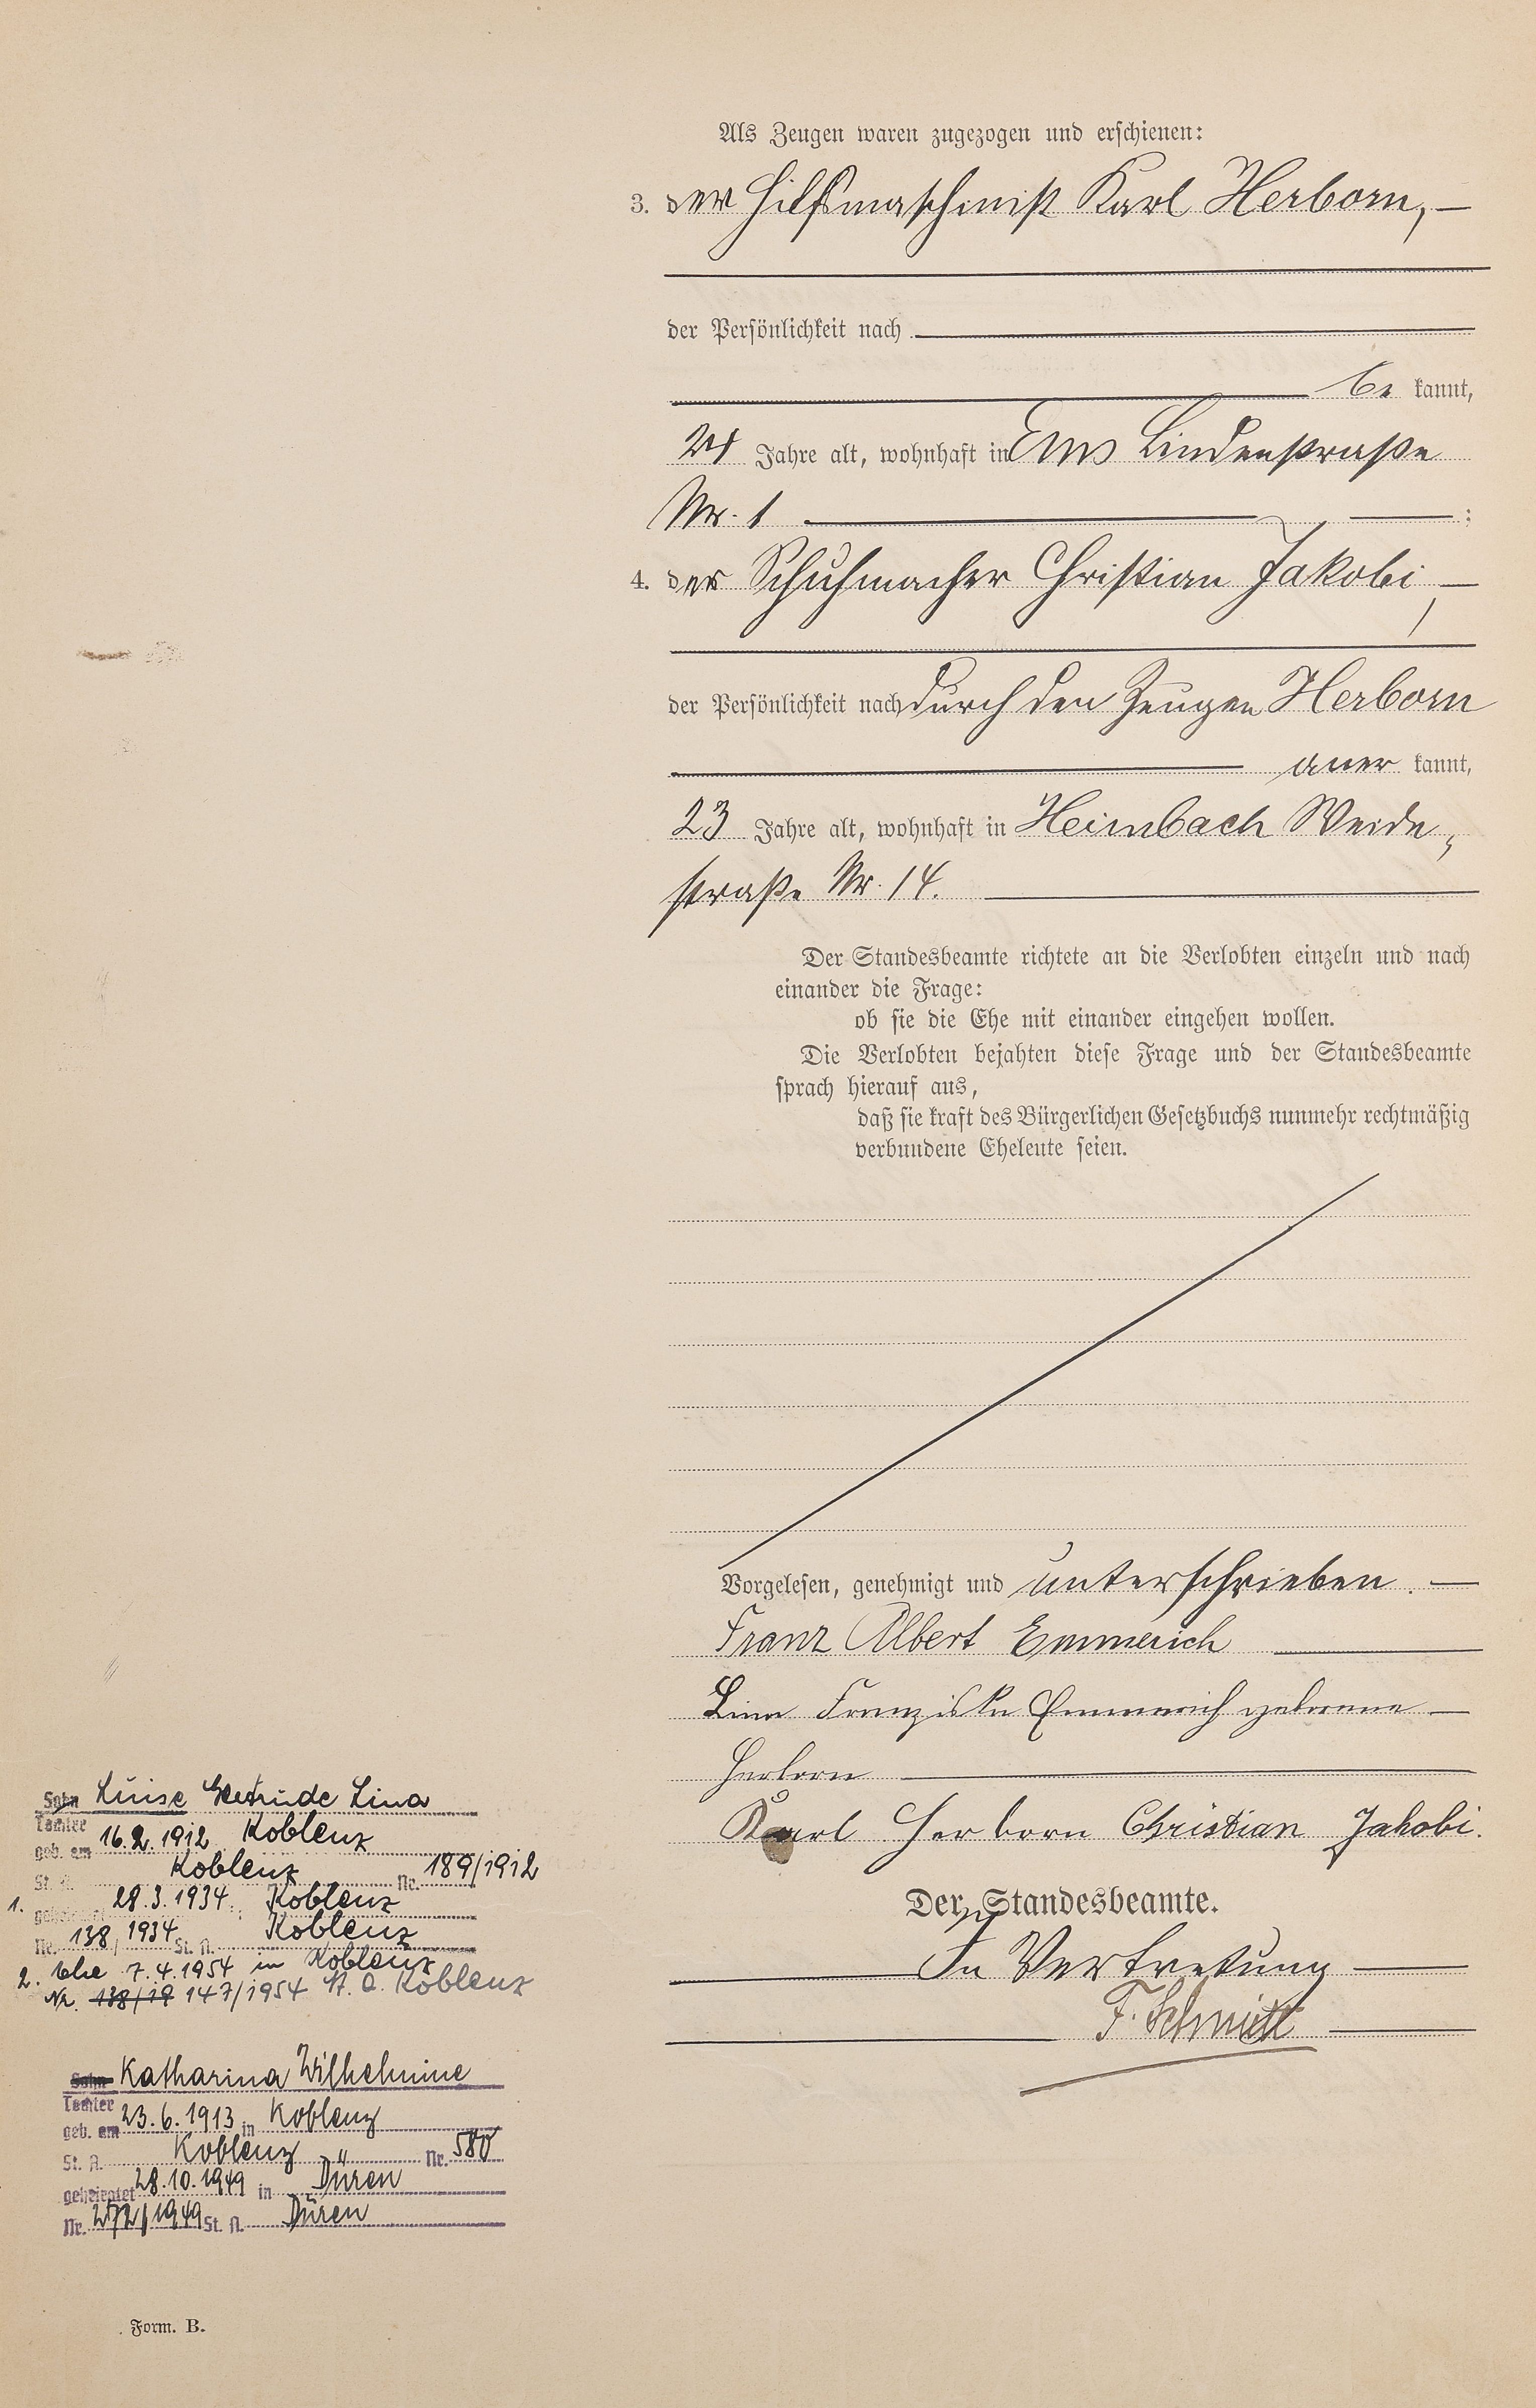 Als Zeugen waren zugezogen und erschienen:
3. der Hilfsmaschinist Karl Herborn, —
der Persönlichkeit nach
be kannt,
Jahre alt, wohnhaft in Ems Lindenstraße
Nr. 1 :
4. der Schuhmacher Christian Jakobi, —
der Persönlichkeit nach durch den Zeugen Herborn
aner kannt,
23 Jahre alt, wohnhaft in Heimbach Weide-
straße Nr. 14.
Der Standesbeamte richtete an die Verlobten einzeln und nach
einander die Frage:
ob sie die Ehe mit einander eingehen wollen.
Die Verlobten bejahten diese Frage und der Standesbeamte
sprach hierauf aus,
daß sie kraft des Bürgerlichen Gesetzbuchs nunmehr rechtmäßig
verbundene Eheleute seien.
Vorgelesen, genehmigt und unterschrieben. —
Franz Albert Emmerich
Lina Franziska Emmerich geborene —
Herborn
Karl Herborn Christian Jakobi.
Der Standesbeamte.
In Vertretung
F. Schmitt
Sohn Luise Gertrude Lina
Tochter
geb. am 16.2.1912 Koblenz
St. A. Koblenz Nr. 189/1912
1. geheiratet 28.3.1934 Koblenz
Nr. 138/1934 St. A. Koblenz
2. Ehe 7.4.1954 in Koblenz
Nr. 138/19 147/1954 St. A. Koblenz
Sohn Katharina Wilhelmine
Tochter
geb. am 23.6.1913 in Koblenz
St. A. Koblenz Nr. 580
geheiratet 28.10.1949 in Düren
Nr. 272/1949 St. A. Düren
Form. B.